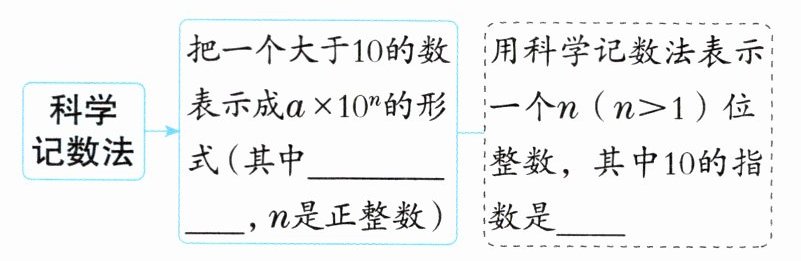 科学
记数法
把一个大于10的数
表示成a×10ⁿ的形
式(其中__________
____,n是正整数)
用科学记数法表示
一个n(n>1)位
整数,其中10的指
数是_____